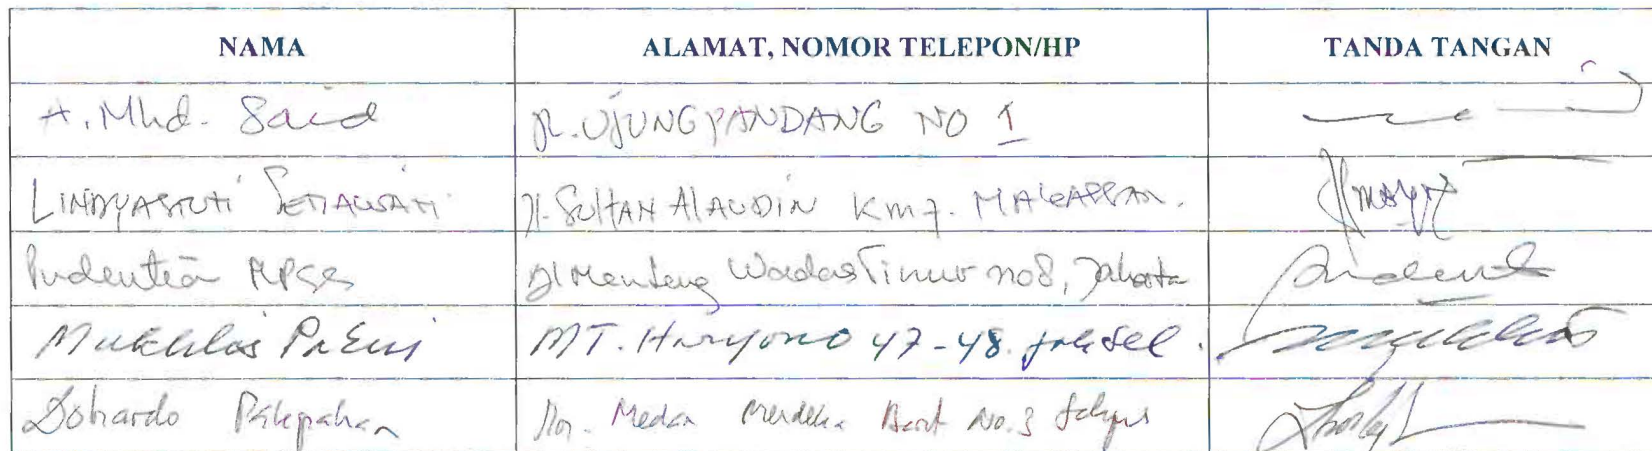 NAMA ALAMAT, NOMOR TELEPON/HP TANDA TANGAN
A. Mhd. Said Jl. UJUNG PANDANG NO 1
LINDYASTUTI SETIAWATI Jl. SULTAN ALAUDIN Km 7. MAKASSAR.
Pudentia MPSS Jl Menteng Wadas Timur no 8, Jakarta
Mukhlis PaEni MT. Haryono 47-48. jaksel.
Medan Merdeka Barat No. 3